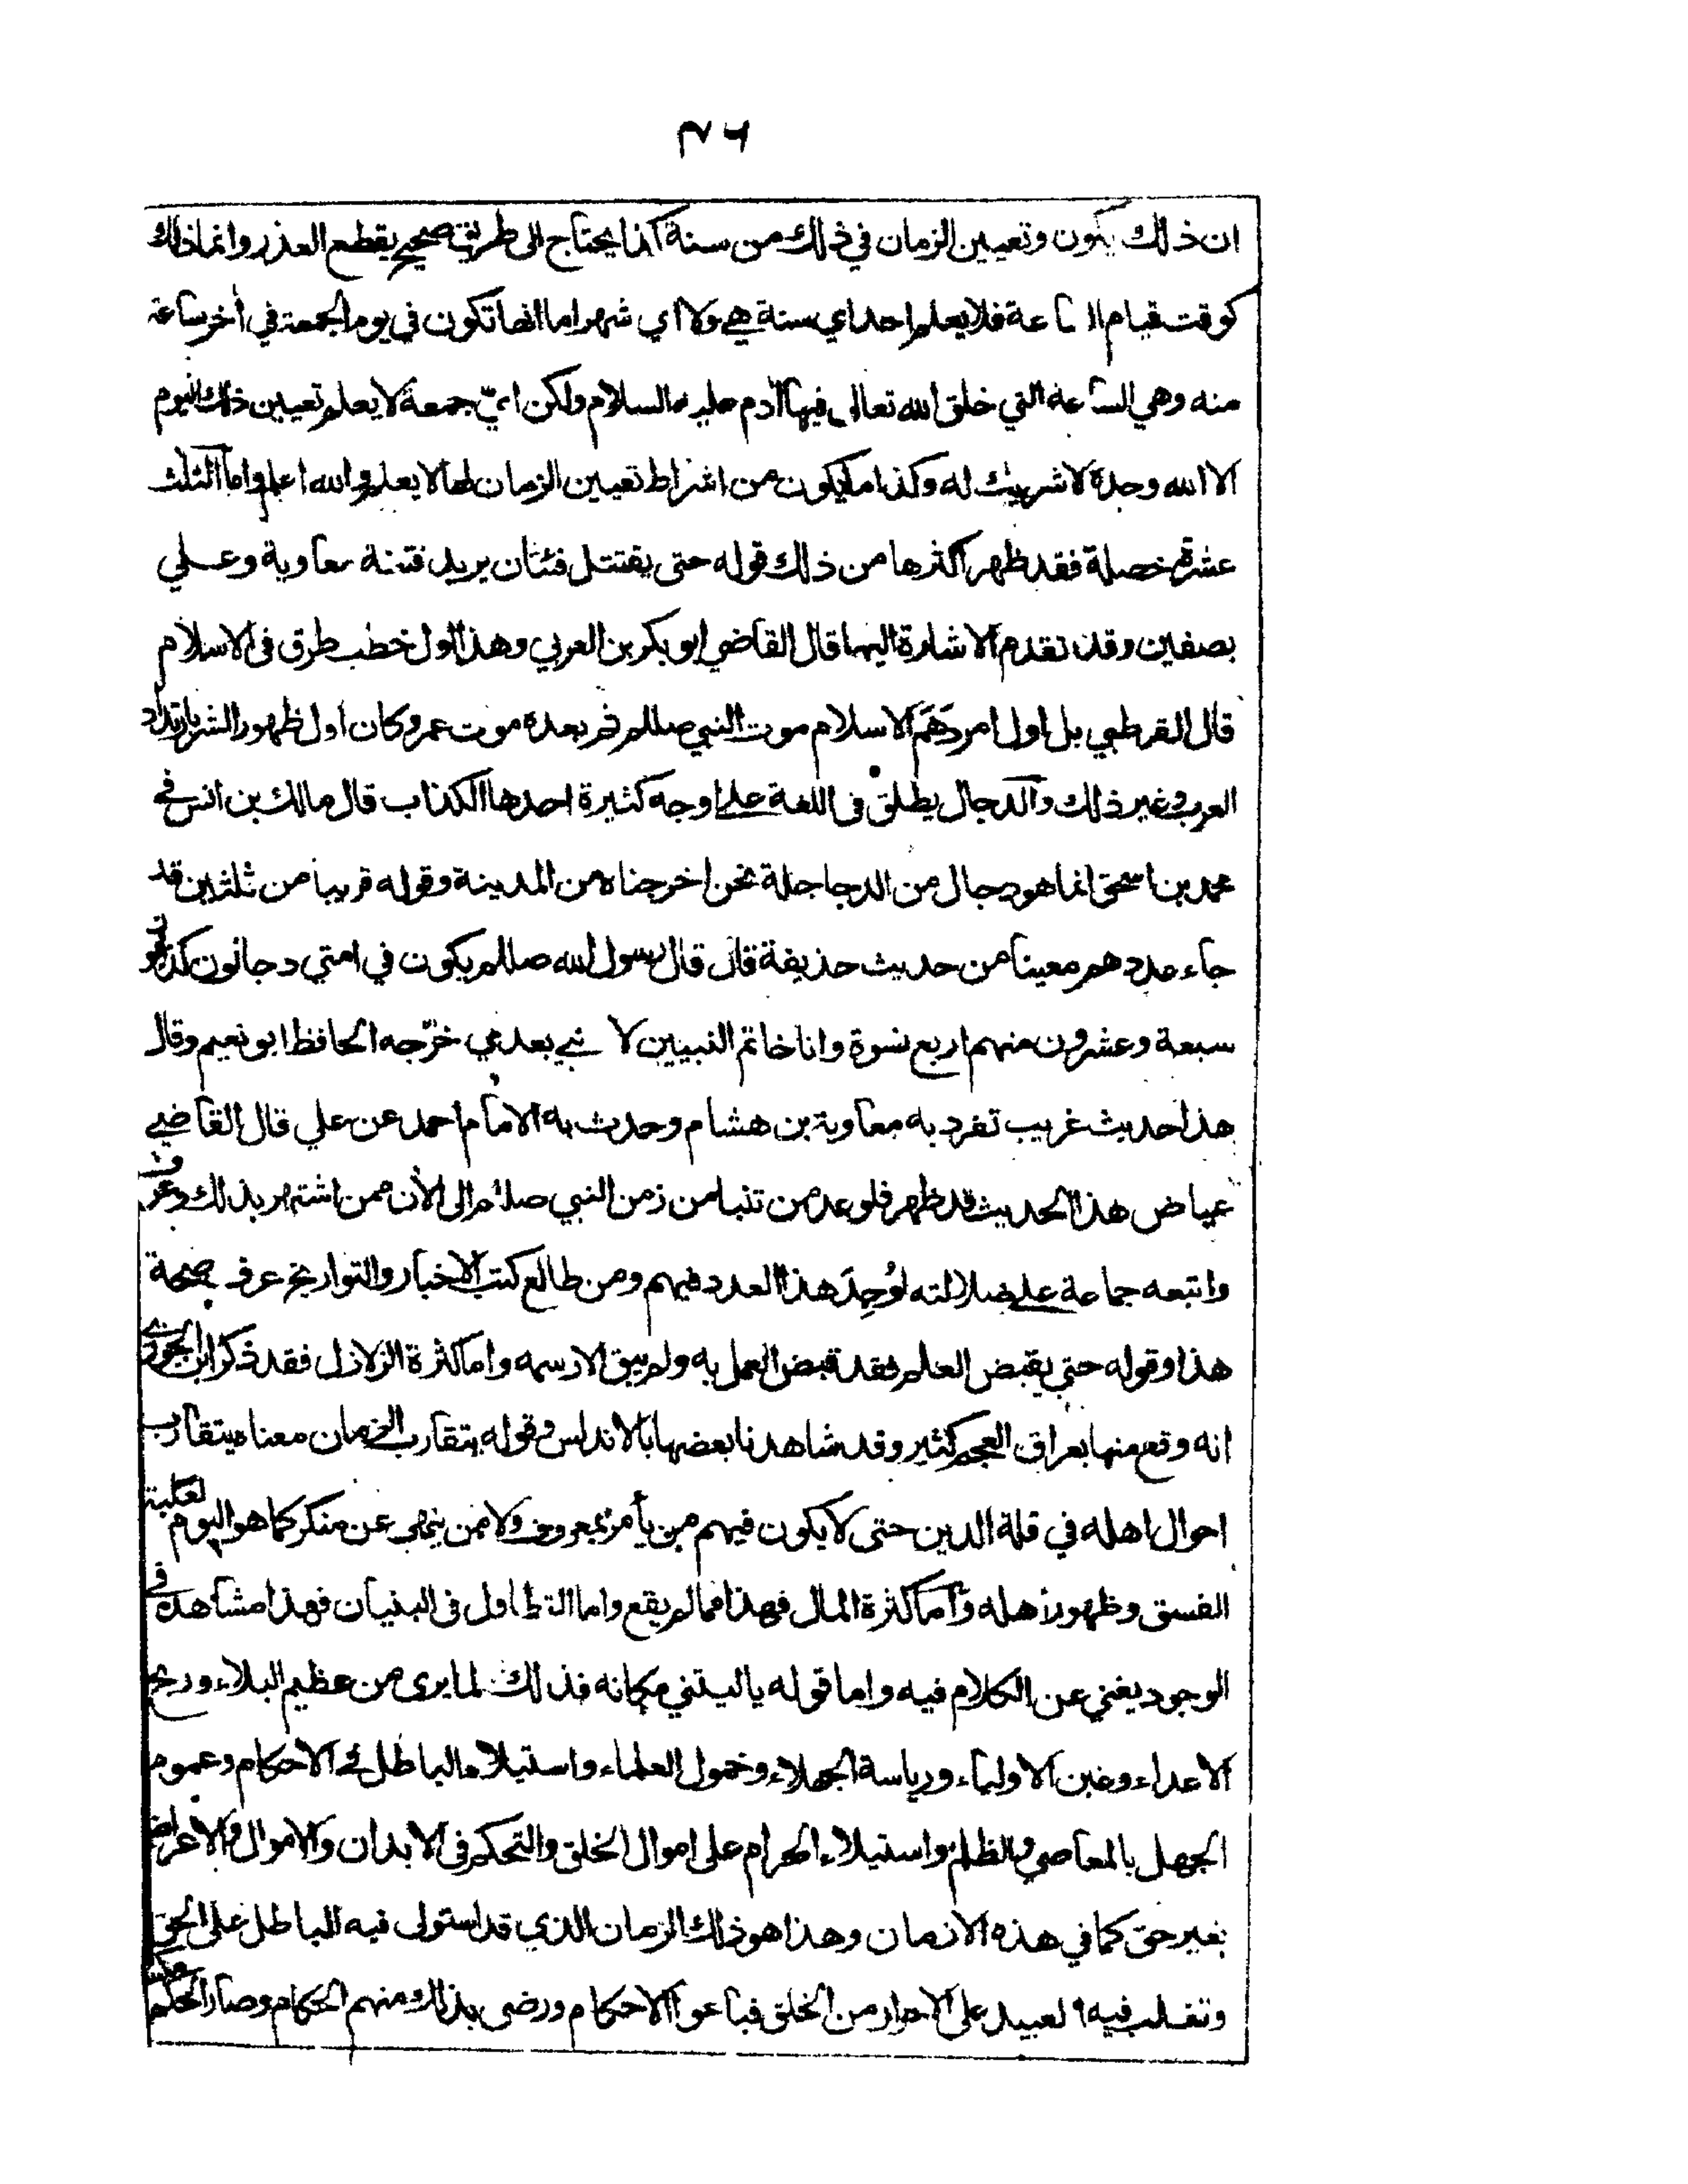 ٣٦
ان ذلك يكون وتعيين الزمان في ذلك من سنة كذا يحتاج الى طريق صحيح يقطع العذر وانما ذلك
كوقت قيام الساعة فلا يعلم احد اي سنة هي ولا اي شهر اما انها تكون في يوم الجمعة في أخر ساعة
منه وهي الساعة التي خلق الله تعالى فيها آدم عليه السلام ولكن ايّ جمعة لا يعلم تعيين ذلك اليوم
الا الله وحده لا شريك له وكذا ما يكون من اشراط تعيين الزمان لها لا يعلم والله اعلم واما الثلث
عشرة خصلة فقد ظهر اكثرها من ذلك قوله حتى يقتتل فئتان يريد فتنة معاوية وعلي
بصفين وقد تقدم الاشارة اليها قال القاضي ابو بكر بن العربي وهذا اول خطب طرق في الاسلام
قال القرطبي بل اول امر دَهَمَ الاسلام موت النبي صللم ثم بعده موت عمر وكان اول ظهور الشر بارتداد
العرب وغير ذلك والدجال يطلق في اللغة على اوجه كثيرة احدها الكذاب قال مالك بن انس في
محمد بن اسحق انما هو دجال من الدجاجلة نحن اخرجناه من المدينة وقوله قريبا من ثلثين قد
جاء عددهم معينا من حديث حذيفة قال قال رسول الله صللم يكون في امتي دجالون كذابون
سبعة وعشرون منهم اربع نسوة وانا خاتم النبيين لا نبي بعدي خرّجه الحافظ ابو نعيم وقال
هذا حديث غريب تفرد به معاوية بن هشام وحدث به الامام احمد عن علي قال القاضي
عياض هذا الحديث قد ظهر فلو عد من تنبا من زمن النبي صللم الى الأن ممن اشتهر بذلك وعرف
واتبعه جماعة على ضلالته لوُجِدَ هذا العدد فيهم ومن طالع كتب الاخبار والتواريخ عرف صحة
هذا وقوله حتى يقبض العلم فقد قبض العمل به ولم يبق الا رسمه واما كثرة الزلازل فقد ذكر ابن الجوزي
انه وقع منها بعراق العجم كثير وقد شاهدنا بعضها بالاندلس وقوله يتقارب الزمان معناه يتقارب
احوال اهله في قلة الدين حتى لا يكون فيهم من يأمر بمعروف ولا من ينهى عن منكر كما هو اليوم لغلبة
الفسق وظهور أهله واما كثرة المال فهذا مما لم يقع واما التطاول في البنيان فهذا مشاهد في
الوجود يغني عن الكلام فيه واما قوله ياليتني مكانه فذلك لما يرى من عظيم البلاء وربح
الاعداء وغبن الاولياء ورياسة الجهلاء وخمول العلماء واستيلاء الباطل في الاحكام وعموم
الجهل بالمعاصي والظلم واستيلاء الحرام على اموال الخلق والتحكم في الابدان والاموال والاعراض
بغير حق كما في هذه الازمان وهذا هو ذلك الزمان الذي قد استولى فيه الباطل على الحق
وتغلب فيه العبيد على الاحرار من الخلق فباعوا الاحكام ورضى بذلك منهم الحكام وصار الحكم